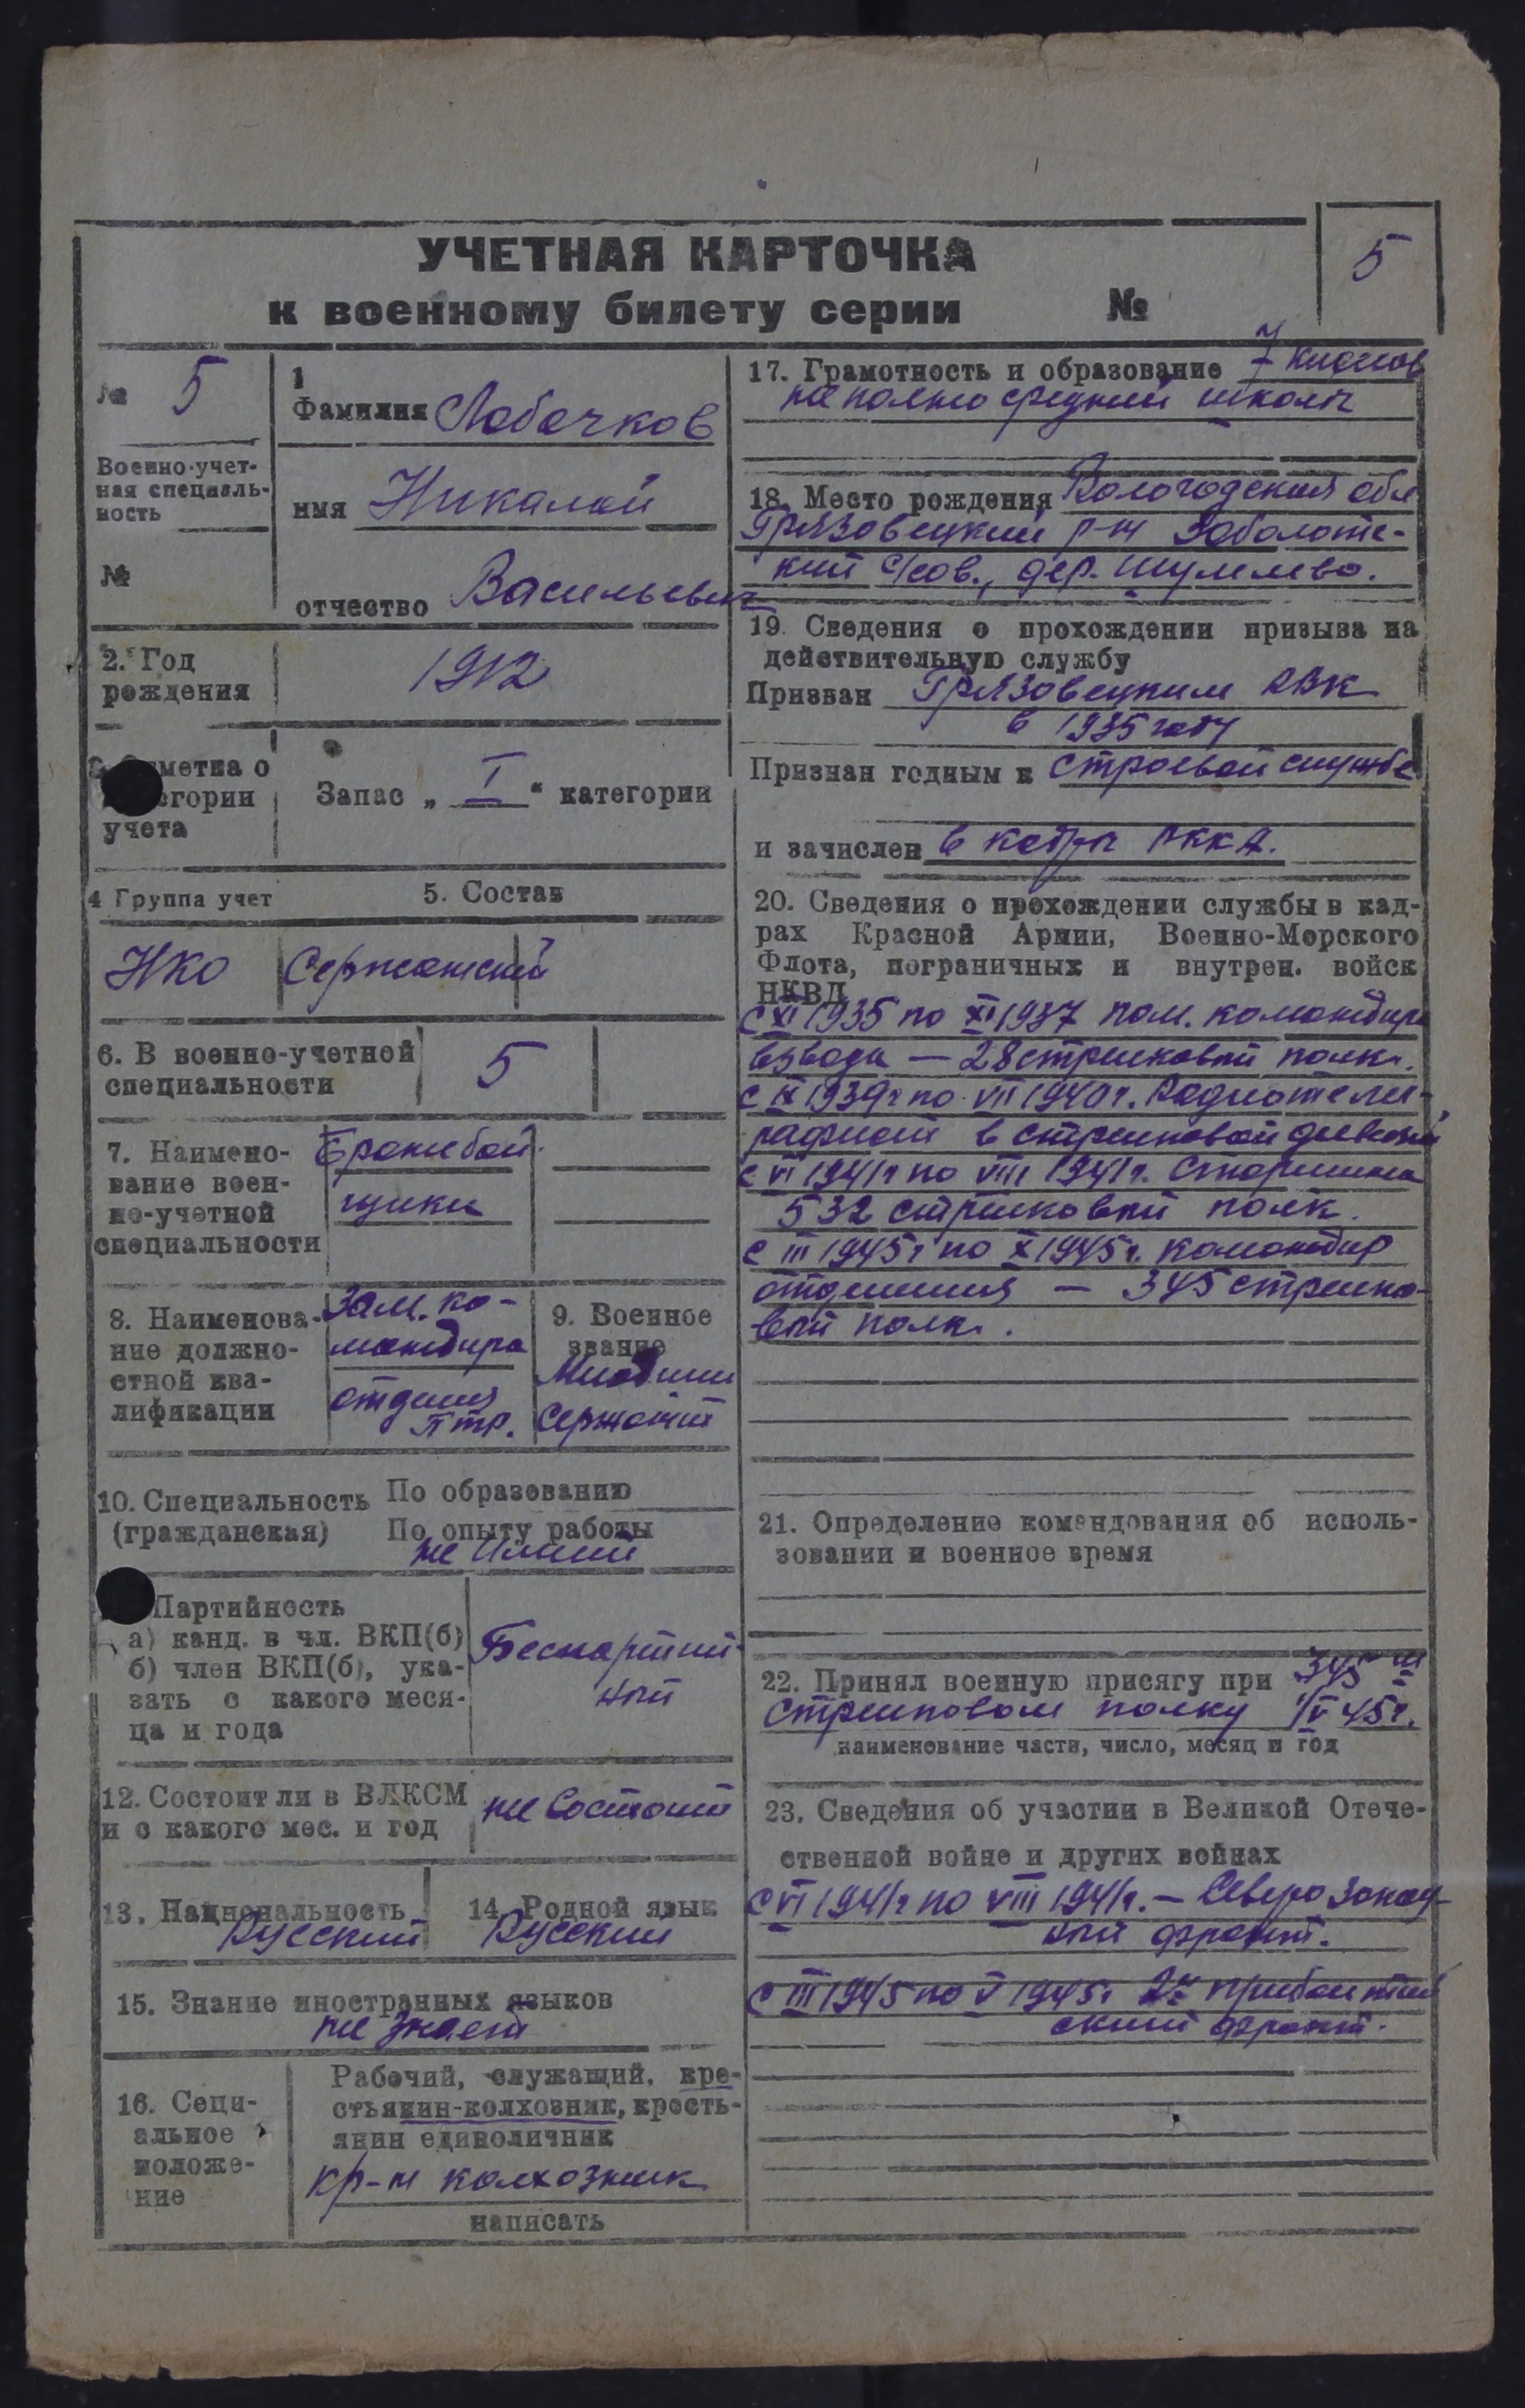 УЧЕТНАЯ КАРТОЧКА
к военному билету серии №
5
№ 5
Военно-учет-
ная специаль-
ность
№
1
Фамилия Лобочков
имя Николай
отчество Васильевич
2. Год
рождения
1912
метка о
егории
учета
Запас „ I “ категории
4 Группа учет
НКО
5. Состав
Сержантский
6. В военно-учетной
специальности
5
7. Наимено-
вание воен-
но-учетной
специальности
Бронебой-
щики
8. Наименова-
ние должно-
стной ква-
лификации
Зам. ко-
мандира
отделения
ПТР.
9. Военное
звание
Младший
Сержант
10. Специальность
(гражданская)
По образованию
По опыту работы
не имеет
Партийность
а) канд. в чл. ВКП(б)
б) член ВКП(б), ука-
зать с какого меся-
ца и года
Беспартий-
ный
12. Состоит ли в ВЛКСМ
и с какого мес. и год
не состоит
13. Национальность
Русский
14. Родной язык
Русский
15. Знание иностранных языков
не знает
16. Соци-
альное
положе-
ние
Рабочий, служащий, кре-
стьянин-колхозник, кресть-
янин единоличник
кр-н колхозник
написать
17. Грамотность и образование 7 классов
неполно средний школы
18. Место рождения Вологодская обл
Грязовецкий р-н Заболотс-
кий с/сов., дер. Шумлево.
19. Сведения о прохождении призыва на
действительную службу
Призван Грязовецким РВК
в 1935 году
Признан годным к строевой службе
и зачислен в кадры РККА.
20. Сведения о прохождении службы в кад-
рах Красной Армии, Военно-Морского
Флота, пограничных и внутрен. войск
НКВД
с XI 1935 по XI 1937 пом. командира
взвода — 28 стрелковый полк.
с IX 1939г по VII 1940г. Радиотелег-
рафист в стрелковой дивизии
с VI 1941г по VIII 1941г. Старшина
532 стрелковый полк.
с III 1945г по X 1945г. командир
отделения — 345 стрелко-
вый полк.
21. Определение командования об исполь-
зовании в военное время
22. Принял военную присягу при 345 м
Стрелковом полку 1/V 45г.
наименование части, число, месяц и год
23. Сведения об участии в Великой Отече-
ственной войне и других войнах
с VI 1941г по VIII 1941г. — Северо Запад-
ный фронт.
с III 1945 по V 1945г 2й Прибалтий
ский фронт.